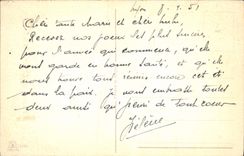 Dijon 8.1.51
Cher tante Marie et cher
Recevez nos voeux les plus sincères
pour l'année qui commence, qu'elle
vous garde en bonne santé, et qu'elle
nous trouve tous réunis encore cet été
dans la paix. je vous embrasse toutes
deux ainsi que Pierre de tout coeur
Hélène